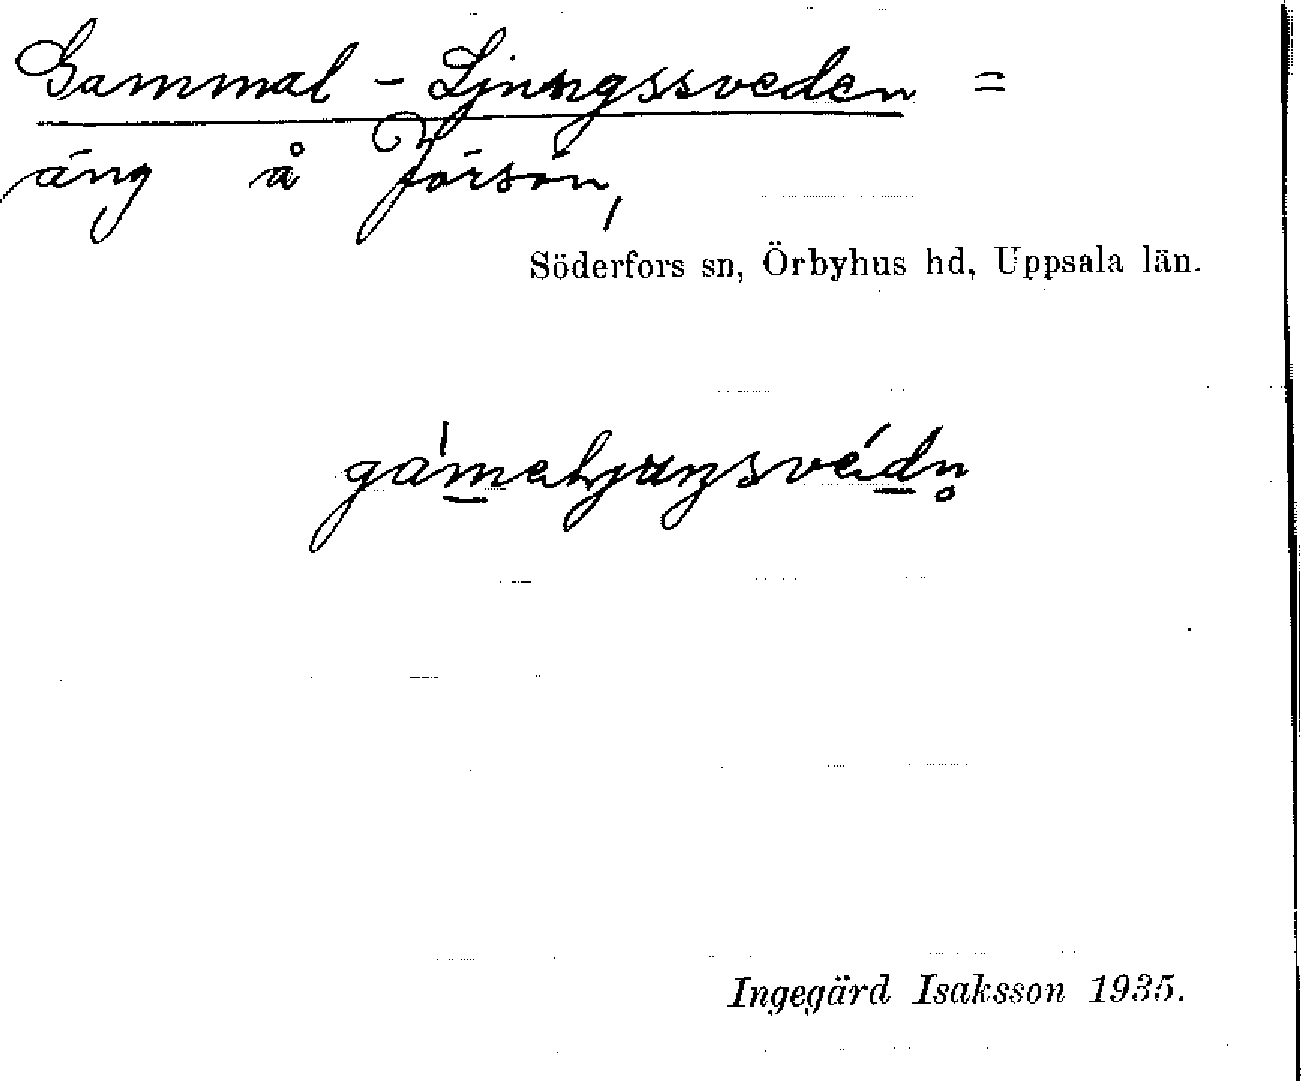 Gammal - Ljungssveden =
äng å Jörsön,
Söderfors sn, Örbyhus hd, Uppsala län.
Ingegärd Isaksson 1935.